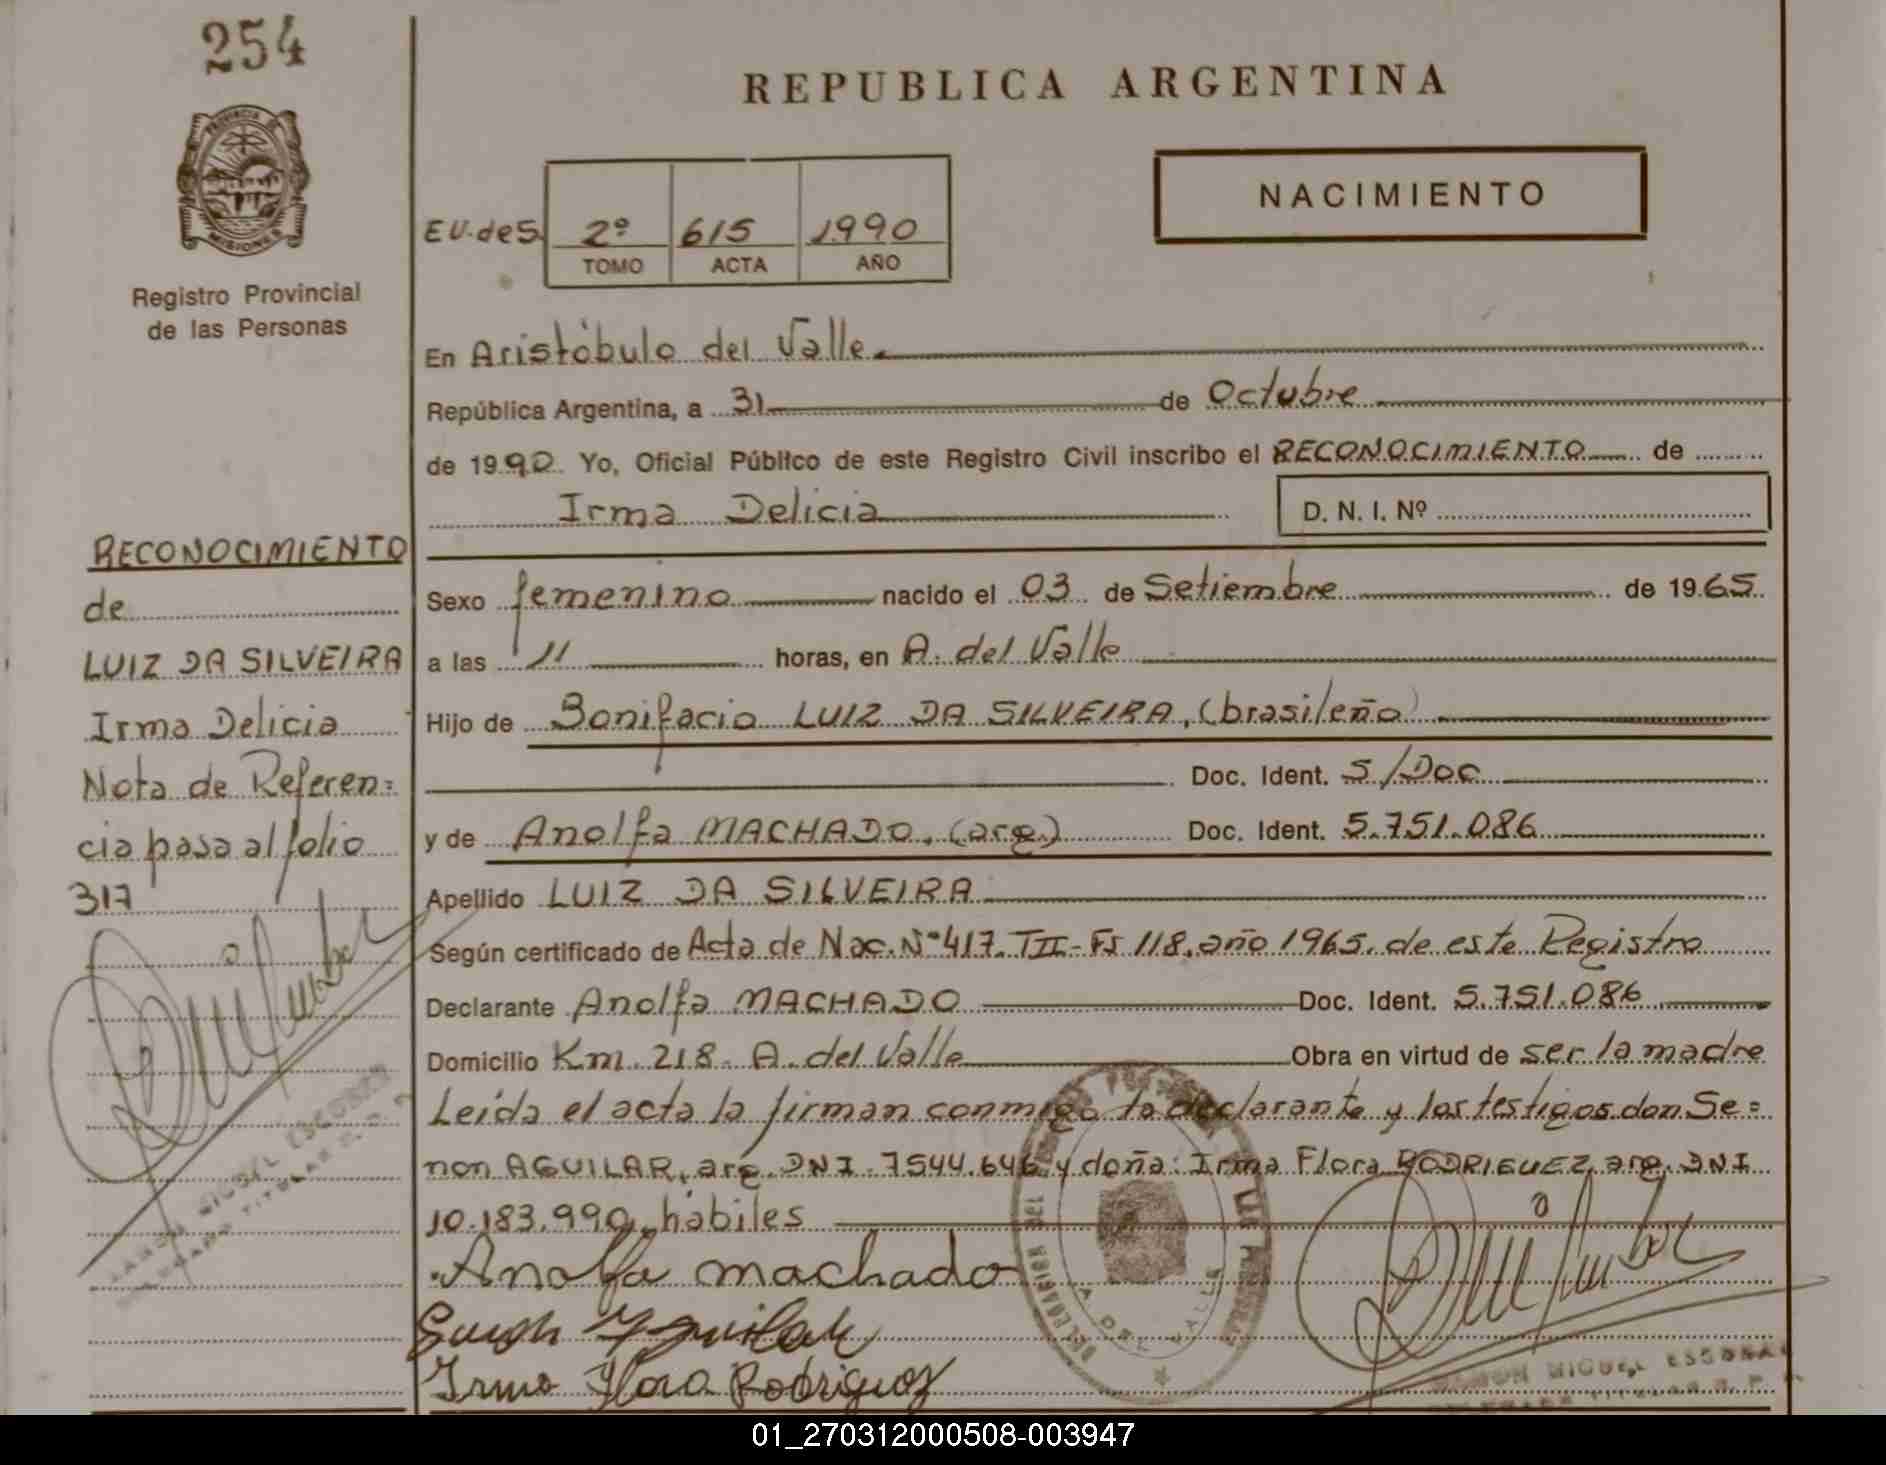 254
REPUBLICA ARGENTINA
PROVINCIA DE
MISIONES
Registro Provincial
de las Personas
EV. de S. 2º 615 1990
TOMO ACTA AÑO
NACIMIENTO
En Aristóbulo del Valle.
República Argentina, a 31 de Octubre
de 1990. Yo, Oficial Público de este Registro Civil inscribo el RECONOCIMIENTO de
Irma Delicia
D. N. I. Nº
Sexo femenino nacido el 03 de Setiembre de 1965.
a las 11 horas, en A. del Valle
Hijo de Bonifacio LUIZ DA SILVEIRA, (brasileño)
Doc. Ident. S/Doc
y de Anolfa MACHADO, (arg.) Doc. Ident. 5.751.086
Apellido LUIZ DA SILVEIRA
Según certificado de Acta de Nac. Nº 417. TII-Fs 118, año 1965, de este Registro
Declarante Anolfa MACHADO Doc. Ident. 5.751.086
Domicilio Km. 218. A. del Valle Obra en virtud de ser la madre
Leída el acta la firman conmigo la declarante y los testigos don Se=
non AGUILAR, arg. DNI. 7544.646 y doña: Irma Flora RODRIGUEZ, arg. DNI
10.183.990, hábiles
Anolfa machado
Irma Flora Rodriguez
RECONOCIMIENTO
de
LUIZ DA SILVEIRA
Irma Delicia
Nota de Referen=
cia pasa al folio
317
RAMON MIGUEL ESCOBAR
RAMON MIGUEL ESCOBAR
01_270312000508-003947